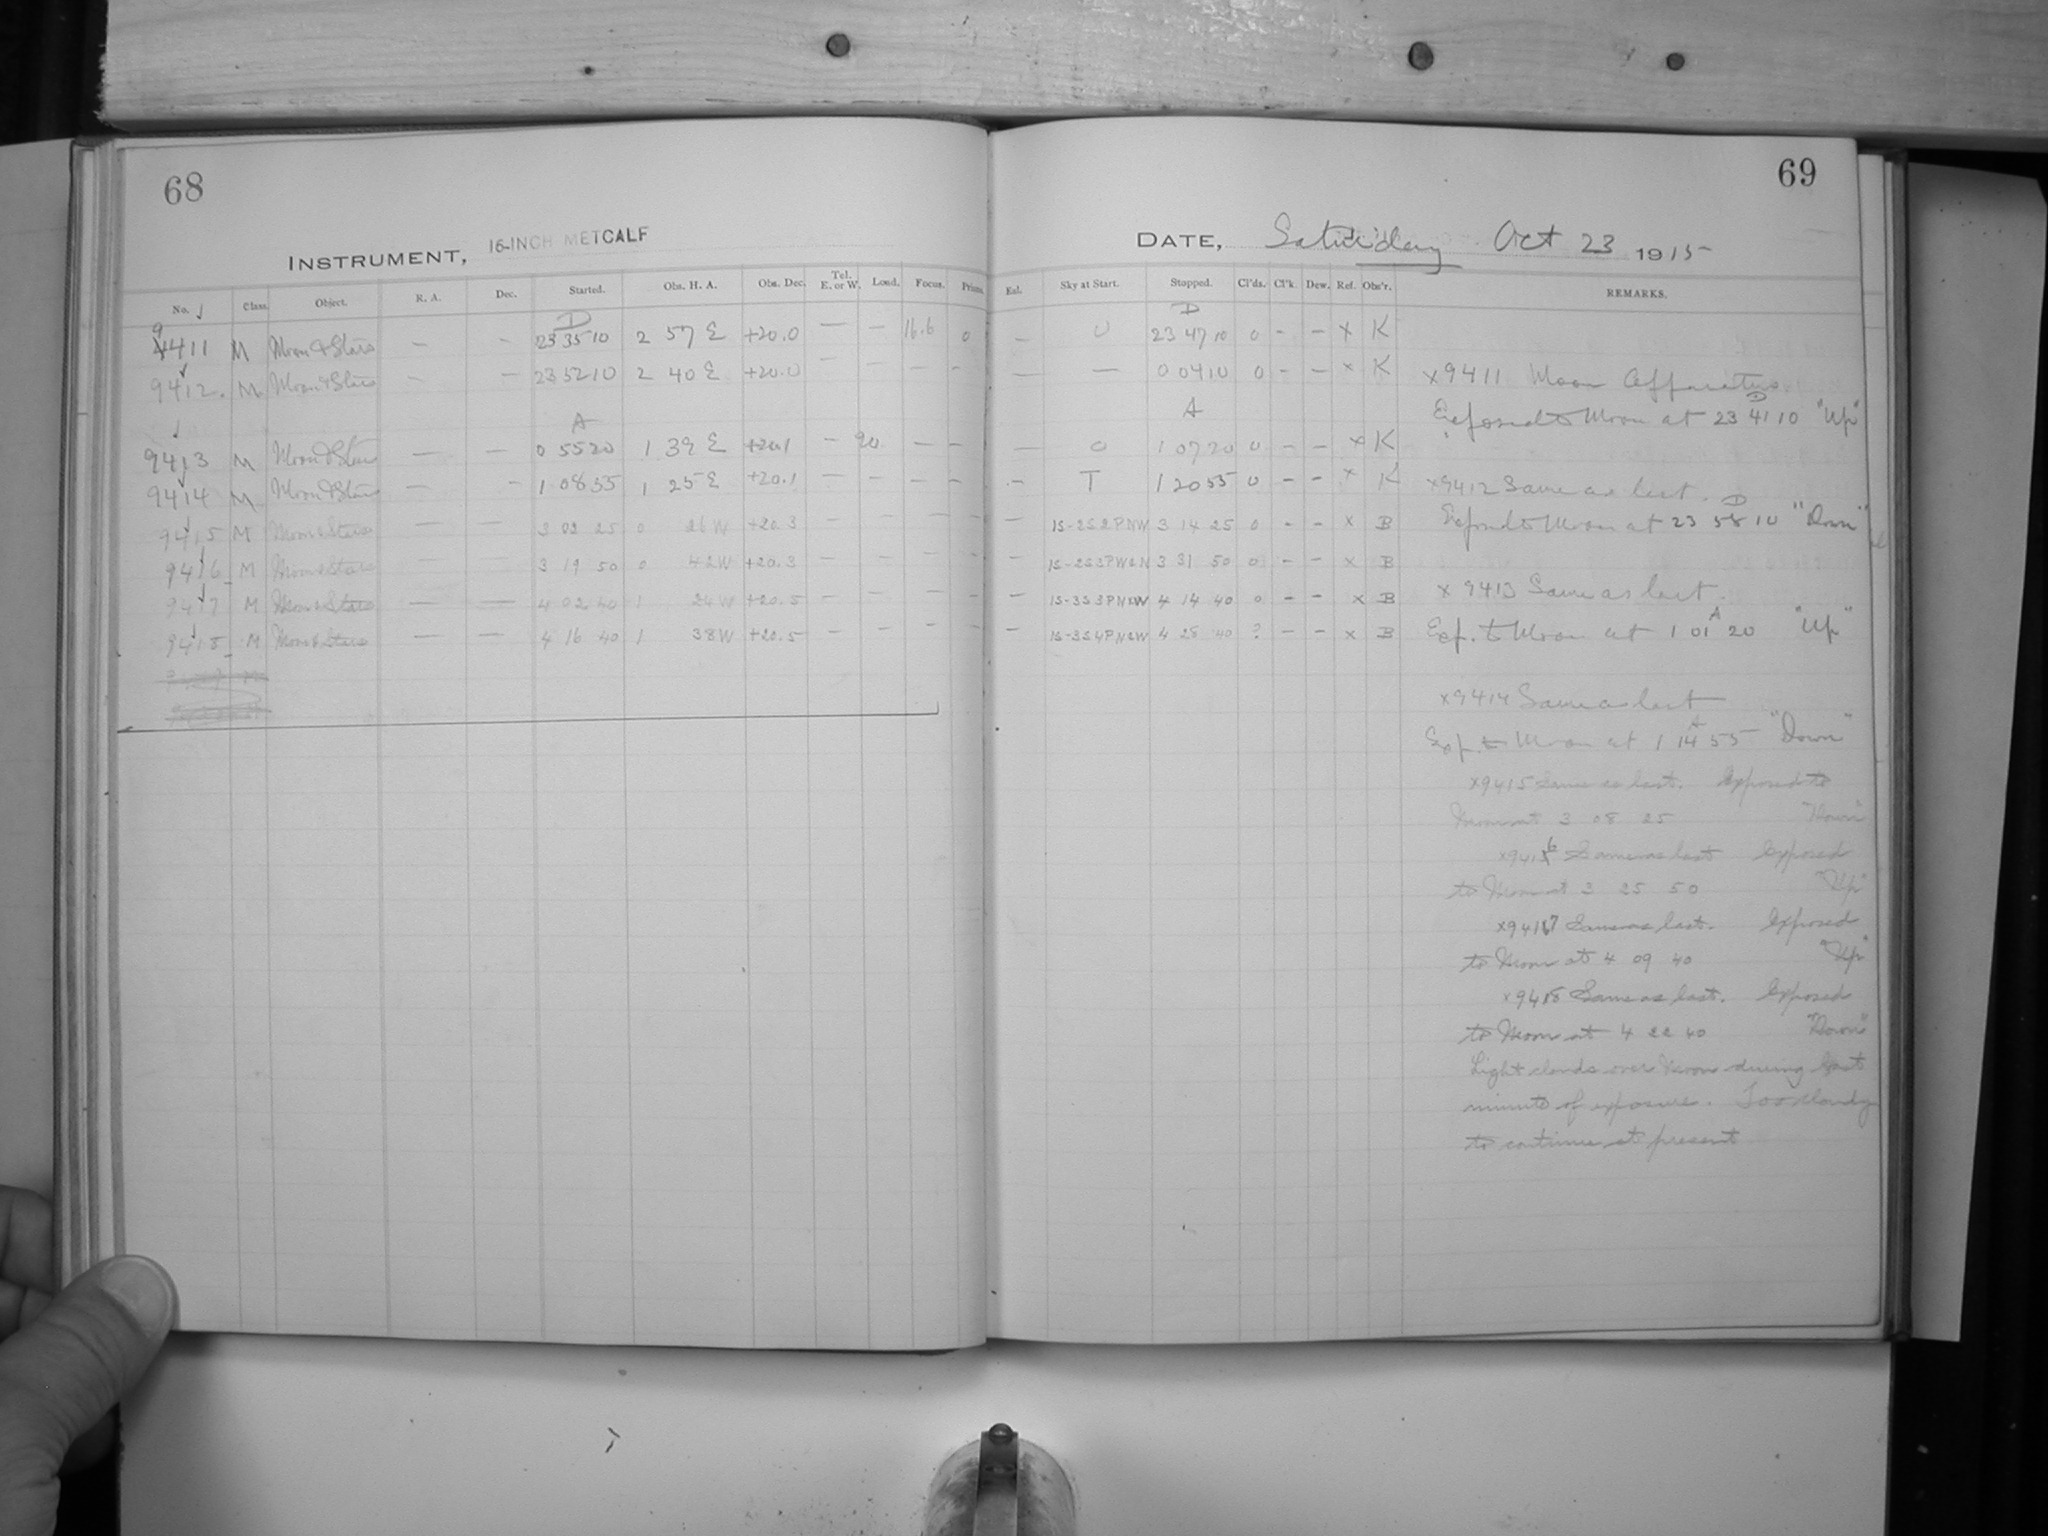 68
INSTRUMENT, 16-INCH METCALF
No. Class. Object. R. A. Dec. Started. Obs. H. A. Obs. Dec. Tel. E. or W. Load. Focus. Prism.
D
9411 M Moon & Stars — — 23 35 10 2 57 E +20.0 — — 16.6 0
9412 M Moon & Stars — — 23 52 10 2 40 E +20.0 — — — —
A
9413 M Moon & Stars — — 0 55 20 1 39 E +20.1 — 90 — —
9414 M Moon & Stars — — 1 08 55 1 25 E +20.1 — — — —
9415 M Moon & Stars — — 3 02 25 0 26 W +20.3 — — — —
9416 M Moon & Stars — — 3 19 50 0 42 W +20.3 — — — —
9417 M Moon & Stars — — 4 02 40 1 24 W +20.5 — — — —
9418 M Moon & Stars — — 4 16 40 1 38 W +20.5 — — — —
69
DATE, Saturday Oct 23 1915
Sky at Start. Stopped. Cl'ds. Cl'k. Dew. Ref. Obs'r. REMARKS.
D
— 0 23 47 10 0 - - x K
— — 0 04 10 0 - - x K
A
— 0 1 07 20 0 - - x K
— T 1 20 55 0 - - x K
— 1S-2S2PNW 3 14 25 0 - - x B
— 1S-2S3PW&N 3 31 50 0 - - x B
— 1S-3S3PN&W 4 14 40 0 - - x B
— 1S-3S4PN&W 4 28 40 ? - - x B
x9411 Moon Apparatus.
Exposed to Moon at 23 41 10 D "Up"
x9412 Same as last.
Exposed to Moon at 23 58 10 D "Down"
x 9413 Same as last.
Exp. to Moon at 1 01 20 A "Up"
x9414 Same as last
Exp. to Moon at 1 14 55 A "Down"
x9415 Same as last. Exposed to
Moon at 3 08 25 "Down"
x9416 Same as last Exposed
to Moon at 3 25 50 "Up"
x9417 Same as last. Exposed
to Moon at 4 09 40 "Up"
x9418 Same as last. Exposed
to Moon at 4 22 40 "Down"
Light clouds over Moon during last
minute of exposure. Too cloudy
to continue at present